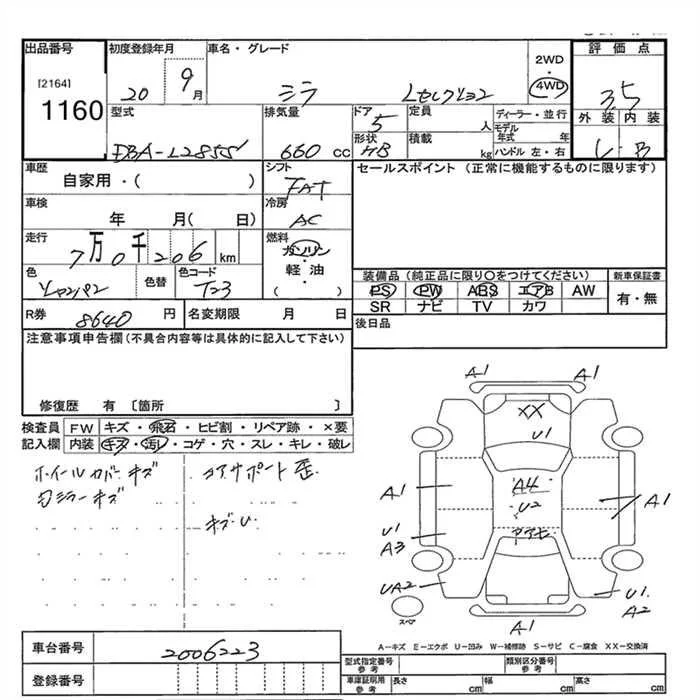 出品番号 初度登録年月 車名・グレード 2WD 評価点
[2164] 20 9月 ミラ Lセレクション 4WD 3.5
1160 外装 内装
型式 排気量 ドア 定員 ディーラー・並行
5 人 モデル年式 年
形状 積載 ハンドル 左・右
EBA-L285S 660 cc HB kg B
車歴 シフト セールスポイント(正常に機能するものに限ります)
自家用・( ) FAT
車検 冷房
年 月( 日) AC
走行 燃料
7万0千206 km ガソリン
軽油
( )
色 色替 色コード 装備品(純正品に限り○をつけてください) 新車保証書
T23 PS PW ABS エアB AW 有・無
SR ナビ TV カワ
R券 8640 円 名変期限 月 日 後日品
注意事項申告欄(不具合内容等は具体的に記入して下さい)
修復歴 有 〔箇所 〕
検査員 FW キズ・飛石・ヒビ割・リペア跡・×要
記入欄 内装 キズ・汚れ・コゲ・穴・スレ・キレ・破レ
ホイールカバーキズ コアサポート歪
ミラーキズ
キズU
A1 A1
XX
U1
A1 A4 A1
U2
U1
A3
UA2 U1
A2
スペア
A1
A-キズ E-エクボ U-凹み W-補修跡 S-サビ C-腐食 XX-交換済
車台番号 2006223
型式指定番号 参考 類別区分番号 参考
登録番号 車庫証明用 参考 長さ cm 幅 cm 高さ cm